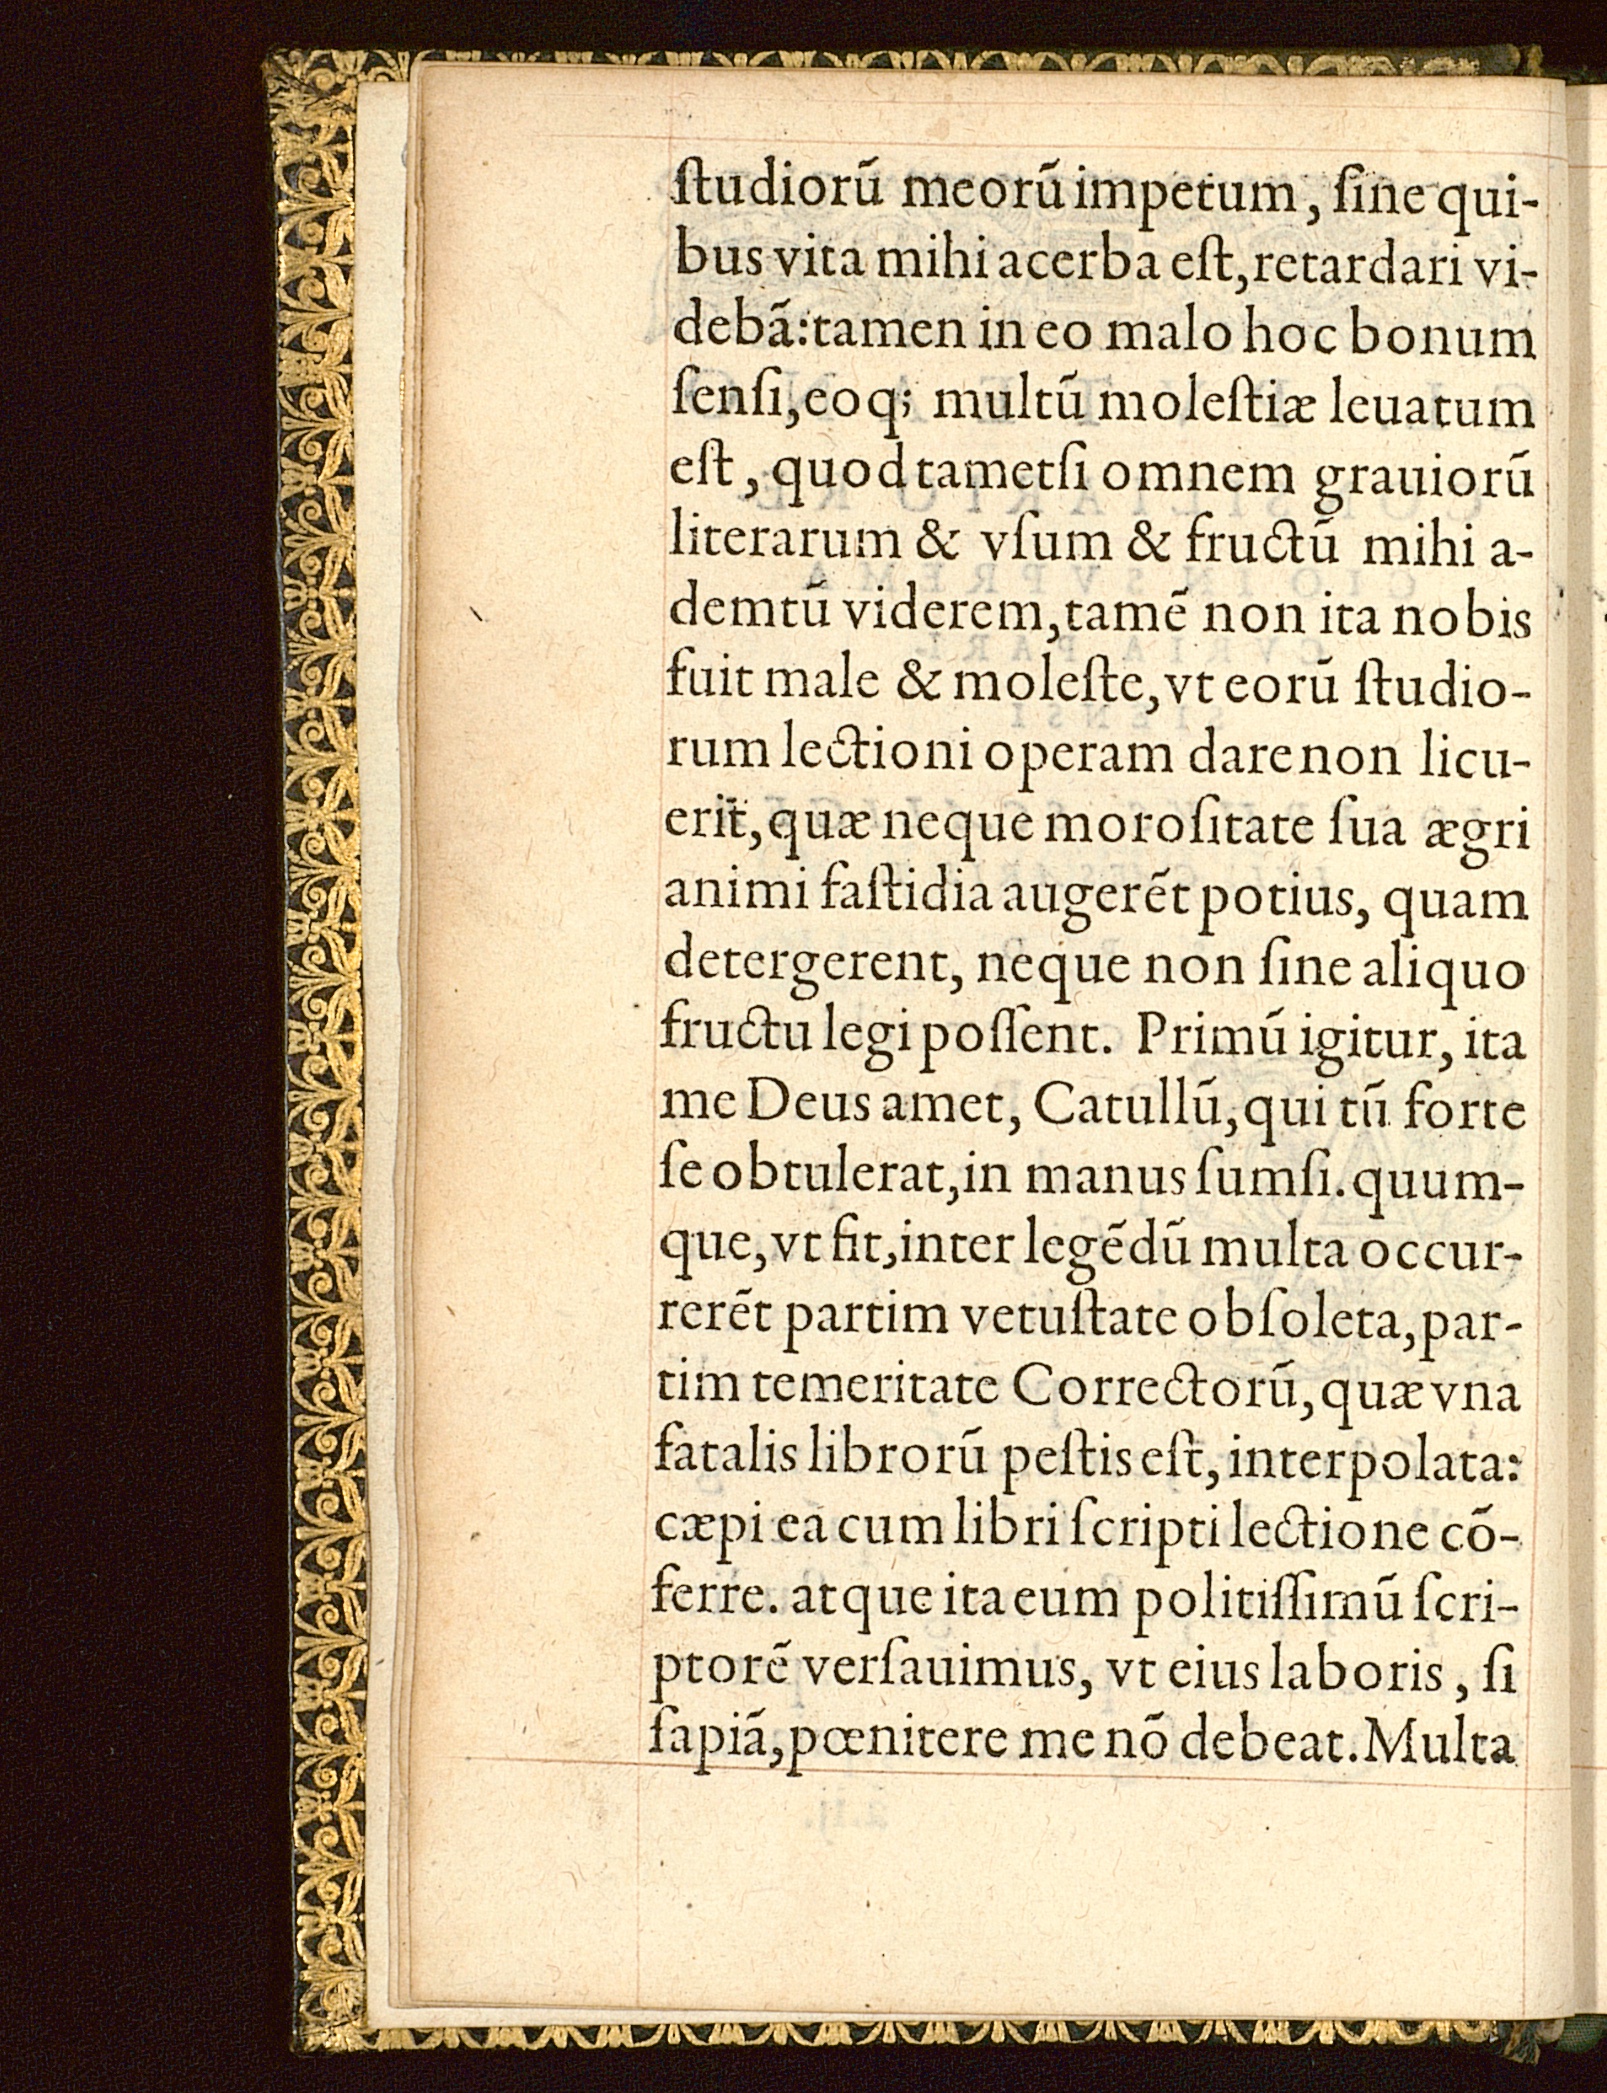 ſtudiorũ meorũ impetum, ſine qui-
bus vita mihi acerba eſt, retardari vi-
debã: tamen in eo malo hoc bonum
ſenſi, eoq; multũ moleſtiæ leuatum
eſt, quod tametſi omnem grauiorũ
literarum & vſum & fructũ mihi a-
demtũ viderem, tamẽ non ita nobis
fuit male & moleſte, vt eorũ ſtudio-
rum lectioni operam dare non licu-
erit, quæ neque moroſitate ſua ægri
animi faſtidia augerẽt potius, quam
detergerent, neque non ſine aliquo
fructu legi poſſent. Primũ igitur, ita
me Deus amet, Catullũ, qui tũ forte
ſe obtulerat, in manus ſumſi. quum-
que, vt fit, inter legẽdũ multa occur-
rerẽt partim vetuſtate obſoleta, par-
tim temeritate Correctorũ, quæ vna
fatalis librorũ peſtis eſt, interpolata:
cæpi ea cum libri ſcripti lectione cõ-
ferre. atque ita eum politiſſimũ ſcri-
ptorẽ verſauimus, vt eius laboris, ſi
ſapiã, pœnitere me nõ debeat. Multa